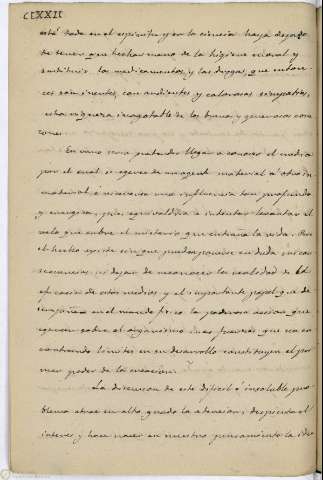 CLXXII
está dada en el espíritu y en la ciencia haya dejado
de tener que hechar mano de la higiene moral y
sustituir los medicamentos y las drogas, que entonces
son impotentes, con ardientes y calorosas simpatías,
esta riqueza inagotable de los buenos y generosos corazones.
En vano sería pretender llegar a conocer el modo
por el cual se ejerce de un agente material á otro in
material é viceversa una influencia tan profunda
y energica, pues equivaldria á intentar levantar el
velo que cubre el misterio que entraña la vida. Pero
el hecho existe sin que pueda ponerse en duda ni con
secuencias ni dejar de reconocer la realidad de la
eficacia de estos medios y el importante papel que de
sempeñan en el mundo físico la poderosa accion que
ejercen sobre el organismo unas fuerzas que no en
contrando limites en su desarrollo constituyen el pri
mer poder de la creacion.
La discusion de este dificil é insoluble pro
blema atrae en alto grado la atencion, despierta el
interes y hace nacer en nuestro pensamiento la idea